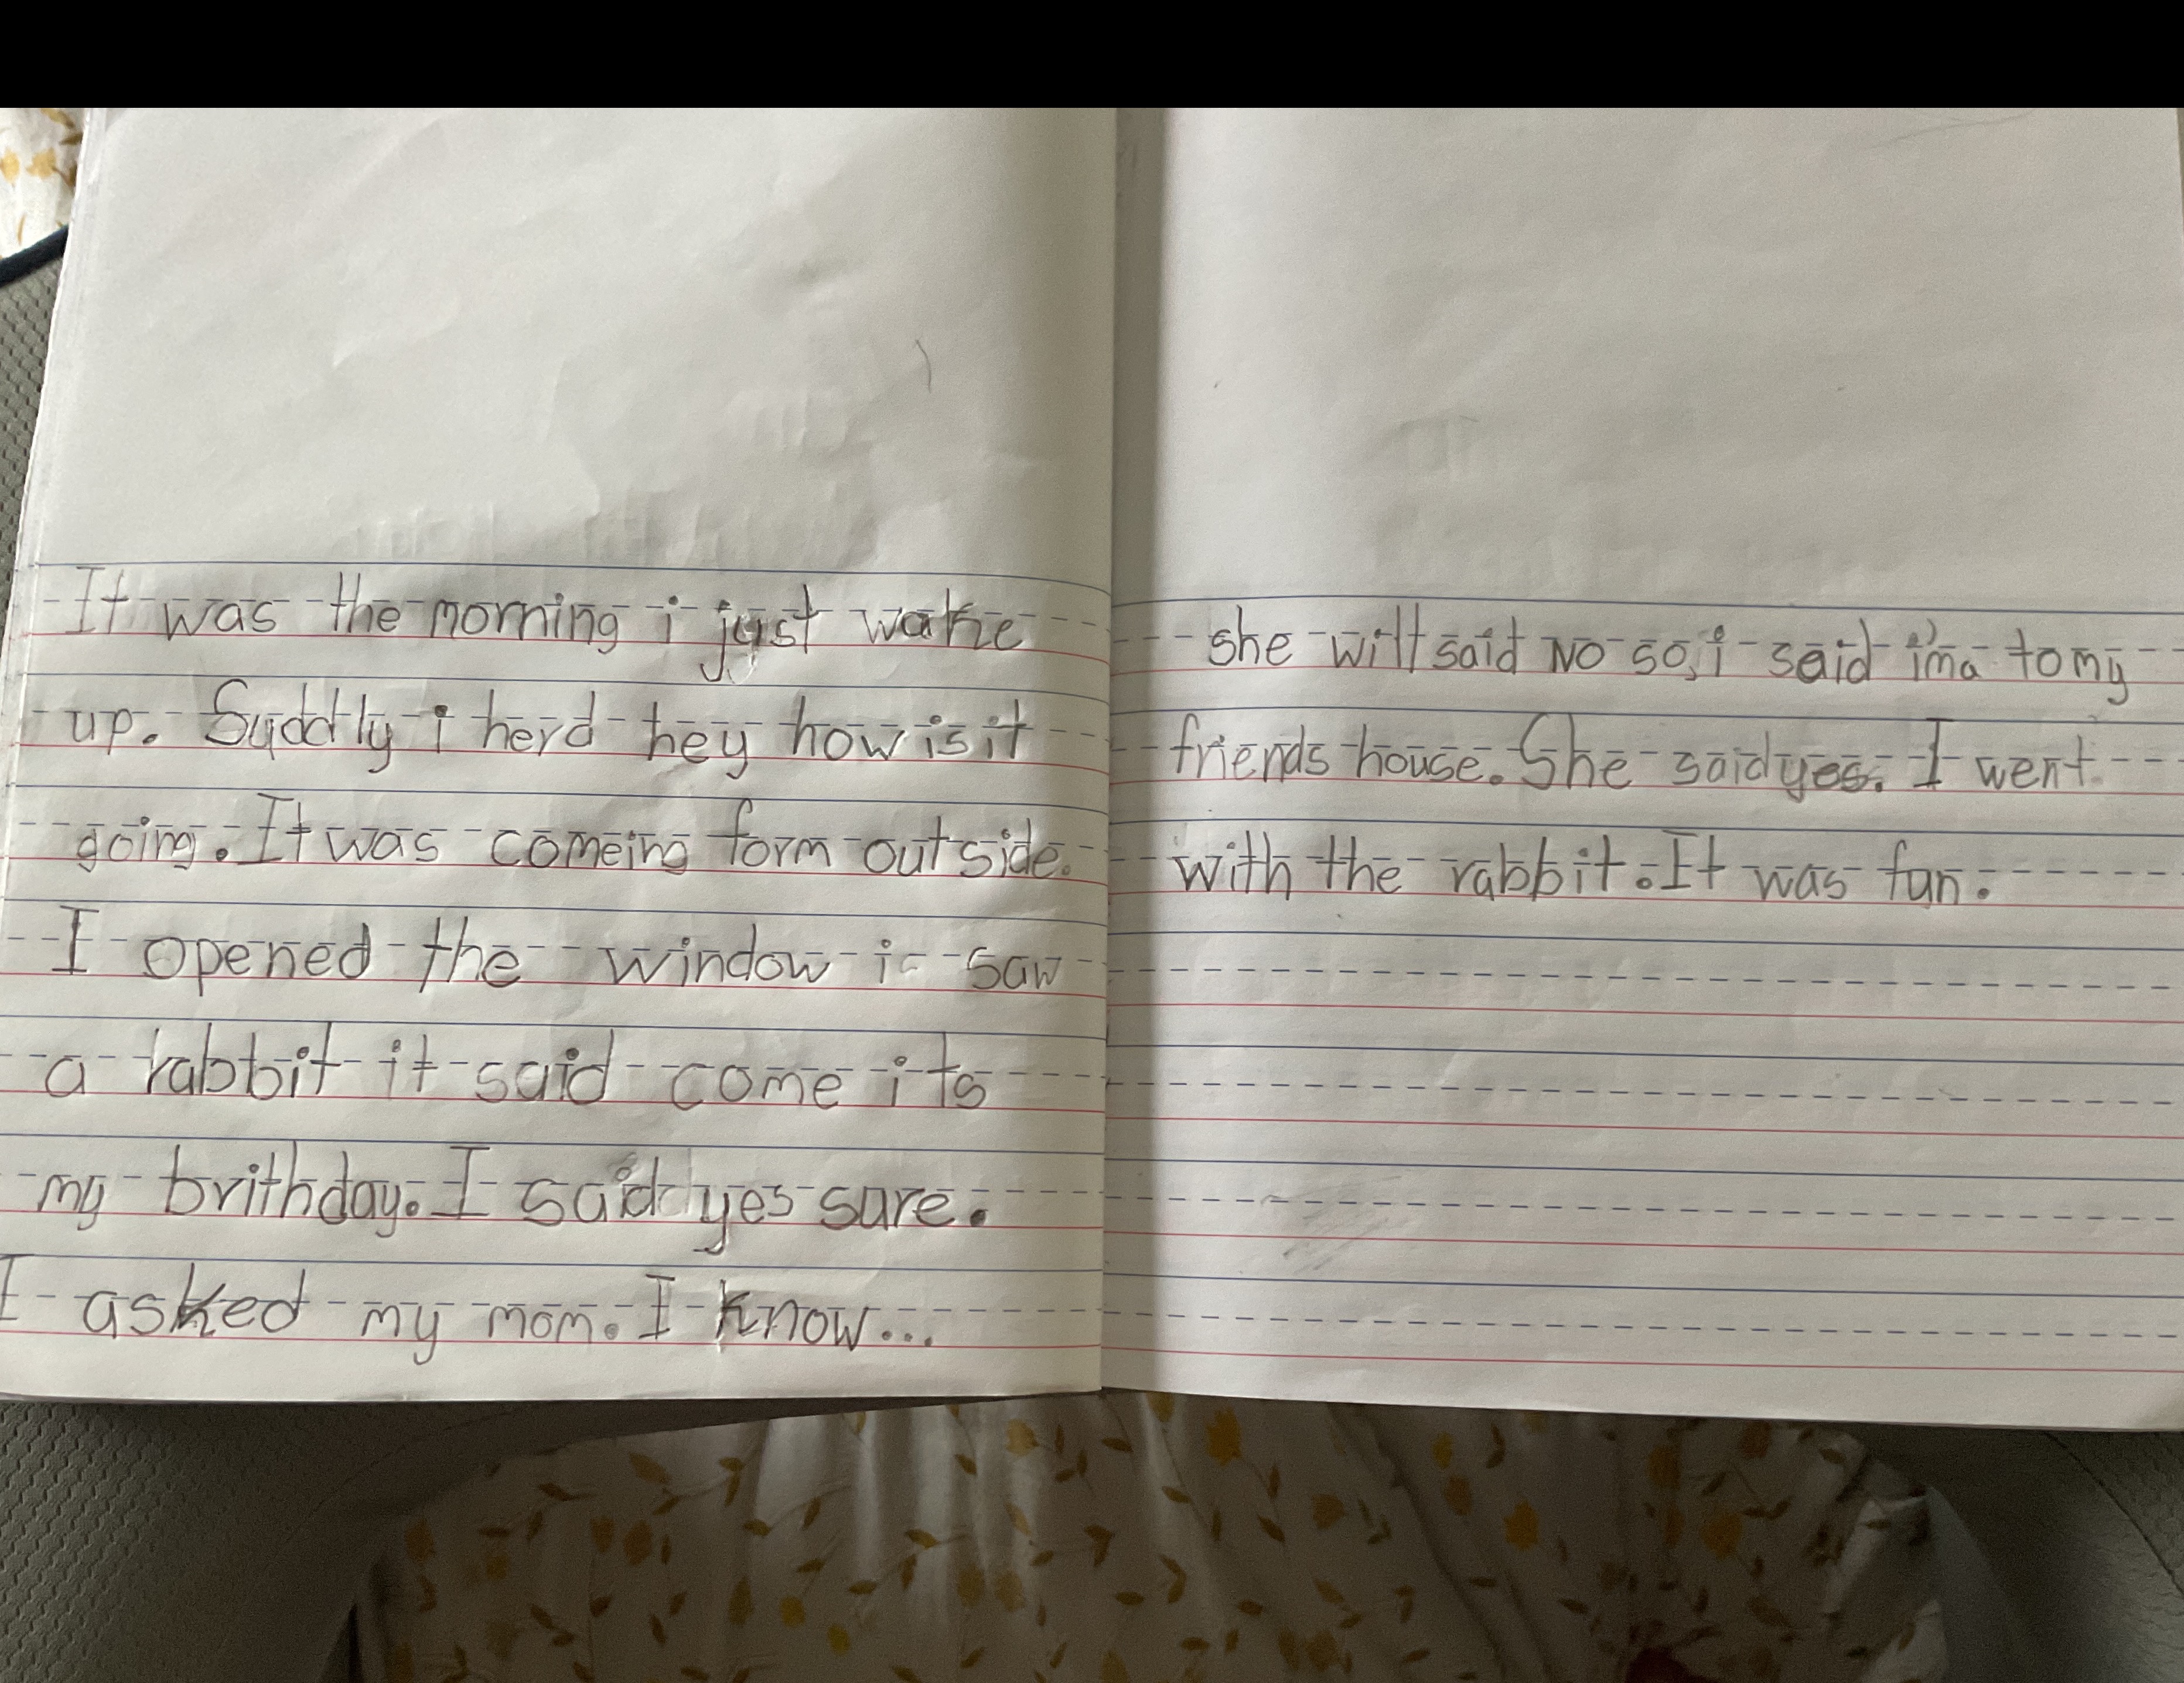 It was the morning i just wake
up. Suddly i herd hey how is it
going. It was comeing form outside.
I opened the window i saw
a rabbit it said come its
my brithday. I said yes sure.
I asked my mom. I know...
she will said NO so, i said i'ma to my
friends house. She said yes. I went
with the rabbit. It was fun.